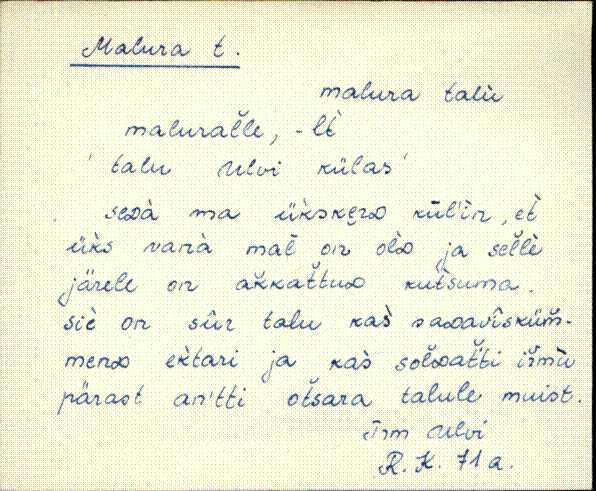 Malura t.
malura talù
malural̆le, -lt̀
'talu Ulvi külas'
seᴅà ma ükskero kūl'in, et̀
üks vanà mat̄ on olò ja sel̆lè
järele on ak̆kat̆tuᴅ kut̀suma.
siè on sûr talu kas̀ saᴅavîsküm̆-
menᴅ ektari ja kas̀ solᴅat̆ti ilmù
pärast an'tti ot̆sara talule muist.
Jrm Ulvi
R. K. 71 a.